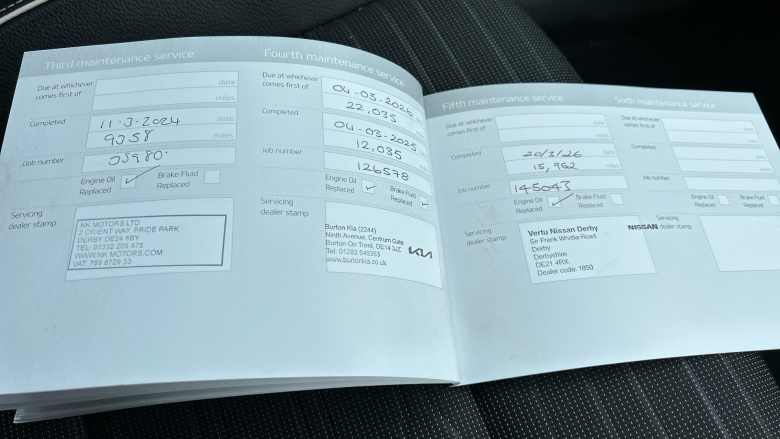 Third maintenance service
Due at whichever comes first of
date
miles
Completed
11.3.2024 date
9358 miles
Job number
35980.
Engine Oil Replaced
Brake Fluid Replaced
Servicing dealer stamp
NK MOTORS LTD
2 ORIENT WAY, PRIDE PARK
DERBY DE24 8BY
TEL: 01332 205 975
WWW.NK MOTORS.COM
VAT: 789 8729 33
Fourth maintenance service
Due at whichever comes first of
04-03-2026 date
22,035 miles
Completed
04-03-2025 date
12,035 miles
Job number
126578
Engine Oil Replaced
Brake Fluid Replaced
Servicing dealer stamp
Burton Kia (2244)
Ninth Avenue, Centrum Gate
Burton On Trent, DE14 3JZ
Tel: 01283 545353
www.burtonkia.co.uk
KIA
Fifth maintenance service
Due at whichever comes first of
date
miles
Completed
20/3/26 date
15,952 miles
Job number
145043
Engine Oil Replaced
Brake Fluid Replaced
Servicing dealer stamp
Vertu Nissan Derby
NISSAN
Sir Frank Whittle Road
Derby
Derbyshire
DE21 4RX
Dealer code: 1850
Sixth maintenance service
Due at whichever comes first of
date
miles
Completed
date
miles
Job number
Engine Oil Replaced
Brake Fluid Replaced
Servicing dealer stamp